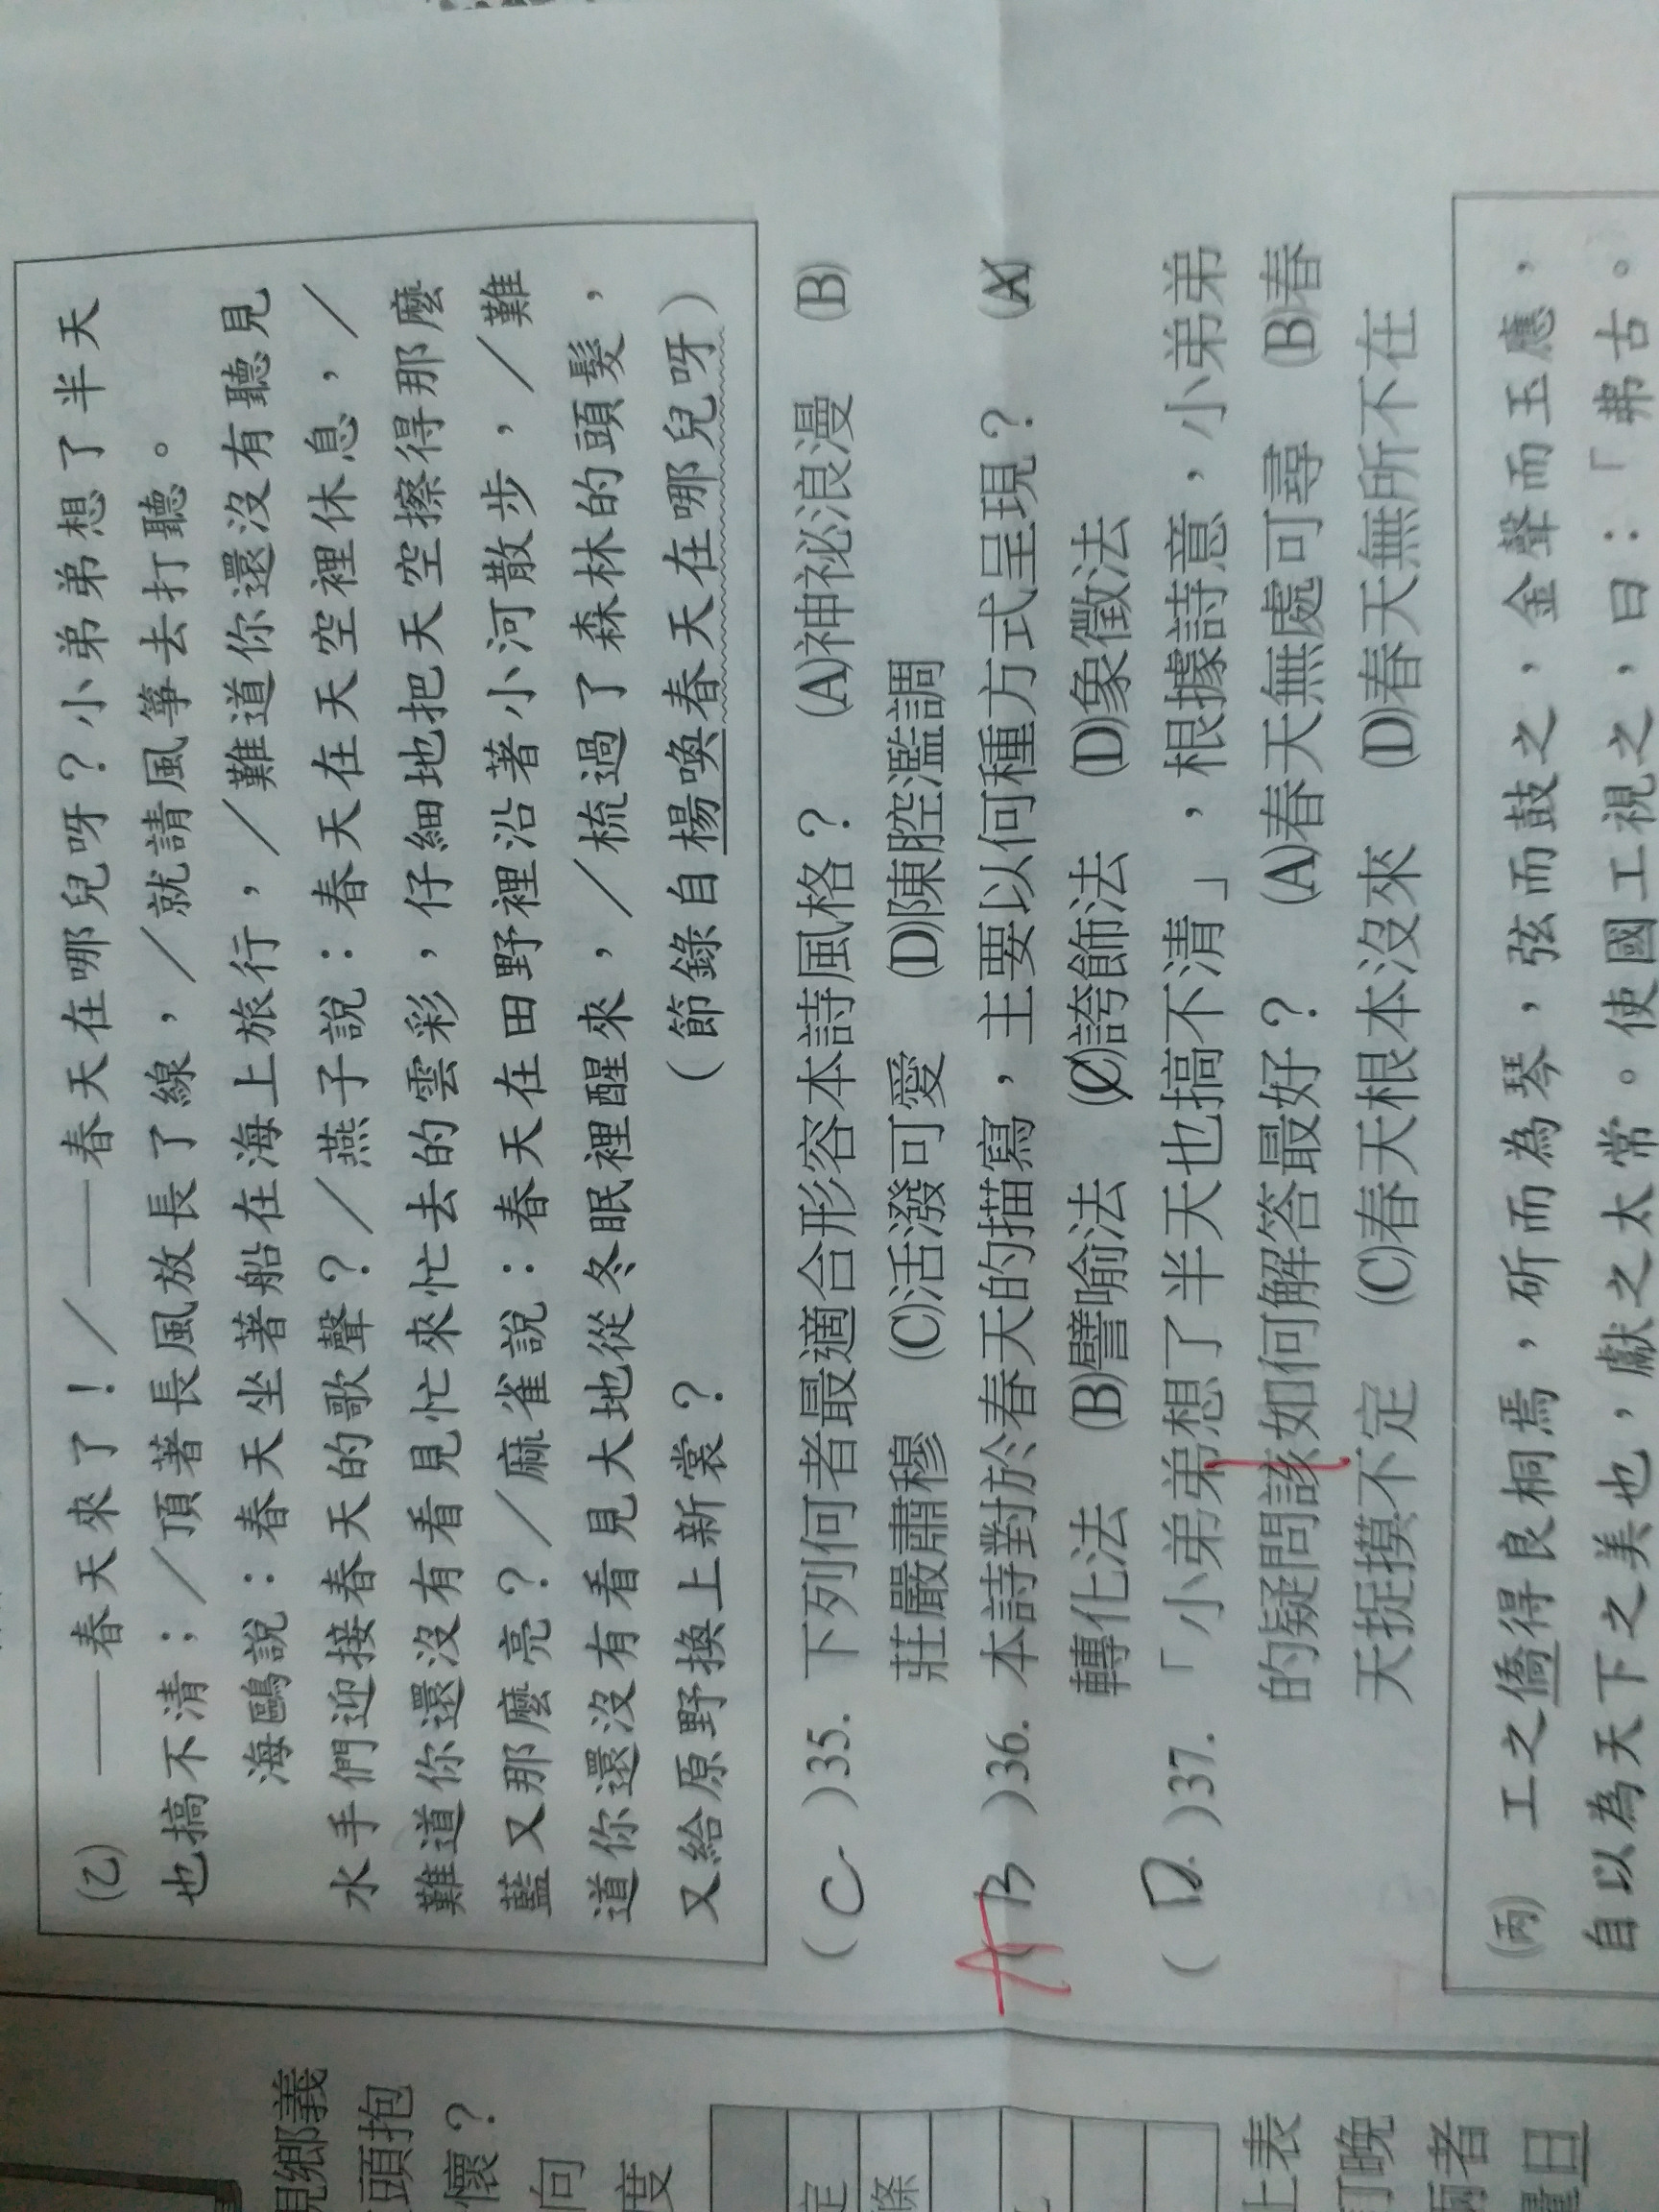 (乙) ——春天來了！／——春天在哪兒呀？小弟弟想了半天
也搞不清；／頂著長風放長了線，／就請風箏去打聽。
海鷗說：春天坐著船在海上旅行，／難道你還沒有聽見
水手們迎接春天的歌聲？／燕子說：春天在天空裡休息，／
難道你還沒有看見忙來忙去的雲彩，仔細地把天空擦得那麼
藍又那麼亮？／麻雀說：春天在田野裡沿著小河散步，／難
道你還沒有看見大地從冬眠裡醒來，／梳過了森林的頭髮，
又給原野換上新裳？
（節錄自楊喚春天在哪兒呀）
( C )35. 下列何者最適合形容本詩風格？ (A)神祕浪漫 (B)
莊嚴肅穆 (C)活潑可愛 (D)陳腔濫調
A
( B )36. 本詩對於春天的描寫，主要以何種方式呈現？ (A)
轉化法 (B)譬喻法 (C)誇飾法 (D)象徵法
( D. )37. 「小弟弟想了半天也搞不清」，根據詩意，小弟弟
的疑問該如何解答最好？ (A)春天無處可尋 (B)春
天捉摸不定 (C)春天根本沒來 (D)春天無所不在
(丙) 工之僑得良桐焉，斲而為琴，弦而鼓之，金聲而玉應，
自以為天下之美也，獻之太常。使國工視之，曰：「弗古。
鄉義
頭抱
懷？
向
度
定
條
上表
訂晚
兩者